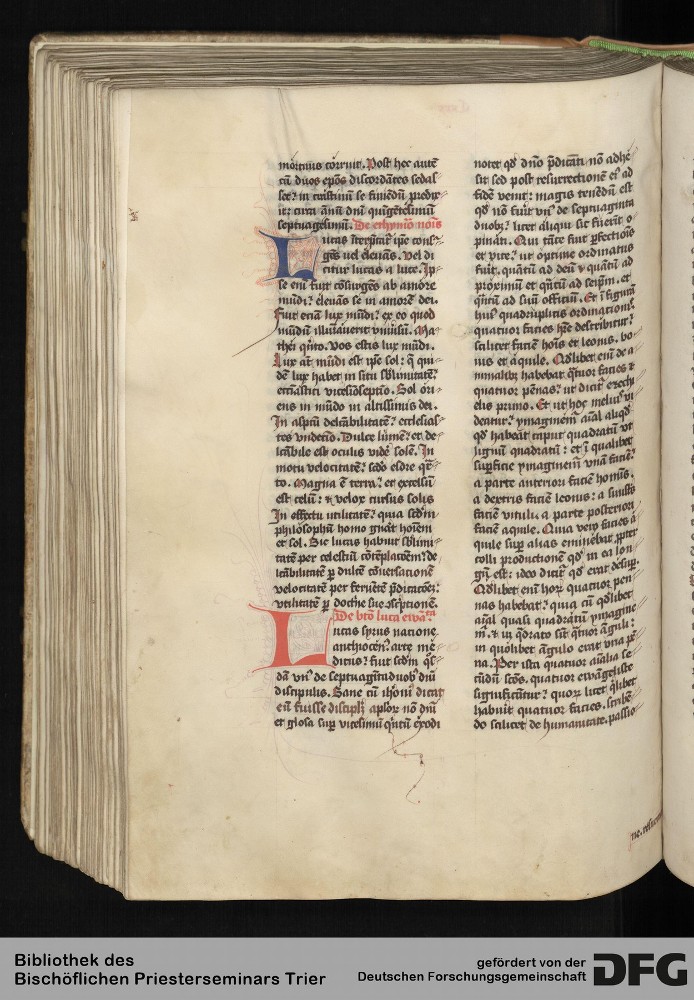 mortuus corruit. Post hec autē
cū duos ep̄os discordātes sedas
set: in cristinū se finiēdū predix
it: circa ānū dn̄i quīgētesimū
septuagesimū. De ethimo nois
Lucas īterp̄tatr ip̄e consr
gēs uel eleuās. vel di
citur lucas a luce. Ip
se em̄ fuit cōsurgēs ab amore
mūdi: eleuās se in amorē dei.
Fuit eciā lux mūdi: ex eo quod
mūdū illuīauerit vniūsū. Ma
thei qīto. Vos estis lux mūdi.
Lux at mūdi est ip̄e sol: q̄ qui
dē lux habet in situ sb̄limitatē
ecciastici vicesioseptīo. Sol ori
ens in mūdo in altissimis dei.
In asp̄tū delcābilitatē: ecclesias
tes vndecīo. Dulce lumē: et de
lcābile est oculis vidē solē. In
motu velocitatē: scd̄o esdre q̄r
to. Magna ē terra: et excelsū
est celū: et velox cursus solis
In effectu utilitatē: quia scd̄m
philosophū homo gn̄at hoīem
et sol. Sic lucas habuit sb̄limi
tatē per celestiū cōtēplacōem: de
lcābilitatē ꝑ dulcē cōuersationē
velocitatē per feruētē p̄dicatōeʒ:
vtilitatē ꝑ doctīne sue scptionē.
De btō luca ewāta
Lucas syrus natione
anthiocen: arte me
dicus: fuit scd̄m qs
dā vnus de septuagītaduob dn̄i
discipulis. Sane cū ihoni dicat
eū fuisse disciplm̄ aplor nō dn̄i
et glosa suꝑ vicesimū q̄ntū exodi
notet qd̄ dn̄o p̄dicāti nō adhe
sit sed post resurrectionē eī ad
fidē venit: magis tenēdū est
qd̄ nō fuit vnus de septuaginta
duobʒ: licet aliqui sic fuerit o
pinati. Qui tāte fuit ꝑfectiōis
et vite: ut optime ordinatus
fuit. quātū ad deū et quātū ad
proximū et q̄ntū ad seip̄m. et
q̄ntū ad suū officiū. Et ī figurā
huius quadruplicis ordinationis
quatuor facies h̄re describitur:
scilicet faciē hoīs et leonis. bo
uis et aquile. Qd̄libet em̄ de a
nimalibʒ habebat q̄tuor facies et
quatuor pēnas: ut dicit ezechi
elis primo. Et ut hoc melius vi
deatur: ymaginem aīal aliqd̄
qd̄ habeāt caput quadratū ut
lignū quadratū: et ī qualibet
suꝑficie ymaginem vnā faciē:
a parte anteriori faciē hominis.
a dextris faciē leonis: a sinistis
faciē vituli: a parte posteriori
faciē aquile. Quia vero facies a
quile suꝑ alias eminebat ꝓpter
colli productionē qd̄ in ea lon
gū est: ideo dicitr qd̄ erat desuꝑ.
Qd̄libet em̄ horʒ quatuor pen
nas habebat: quia cū qd̄libet
aīal quasi quadratū ymagine
m̄. et in qd̄rato sīt q̄tuor āguli:
in quolibet āgulo erat vna pē
na. Per ista quatuor aīalia se
cūdū scōs. quatuor ewāgeliste
significātur: quorʒ licet q̄libet
habuit quatuor facies. scribē
do scilicet de humanitate. passio
Bibliothek des
Bischöflichen Priesterseminars Trier
gefördert von der
Deutschen Forschungsgemeinschaft
DFG